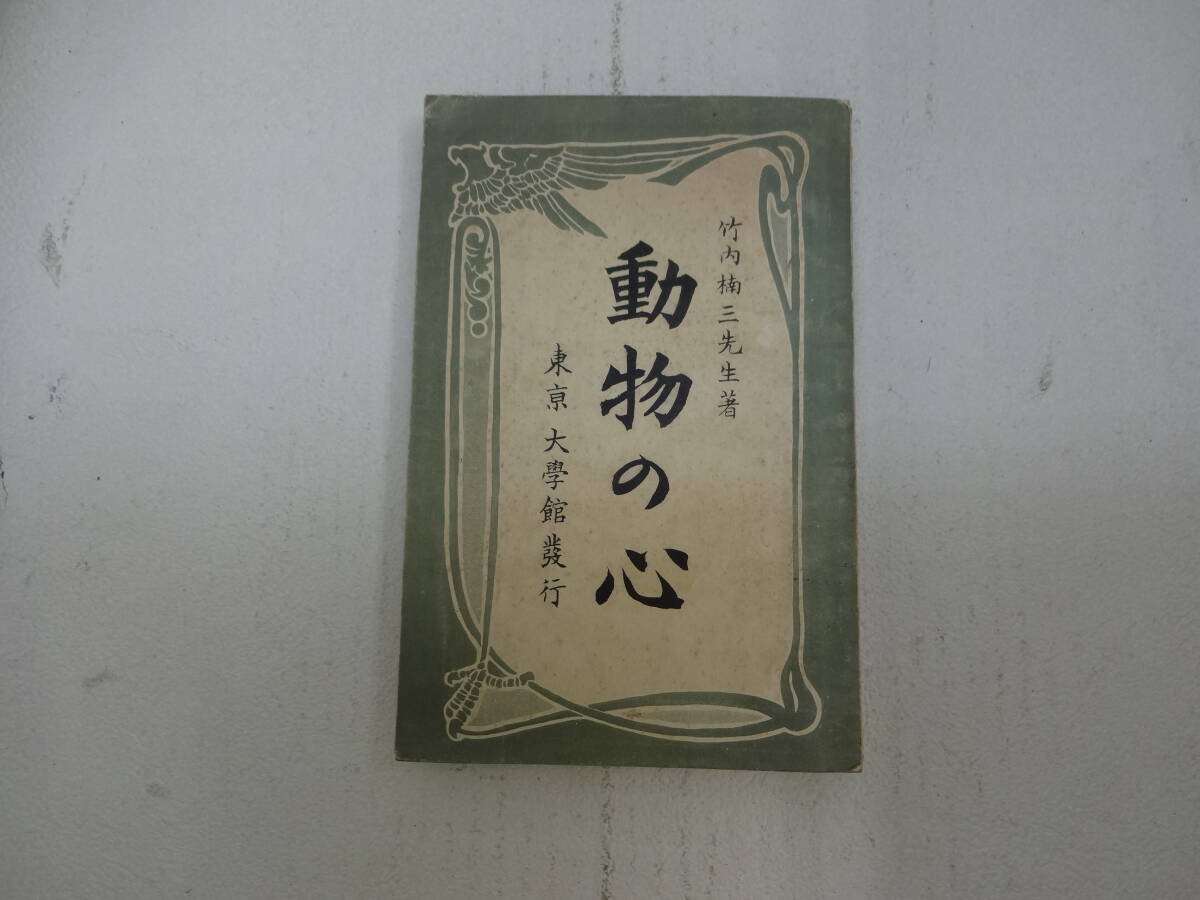 竹内楠三先生著
動物の心
東亰 大學館發行